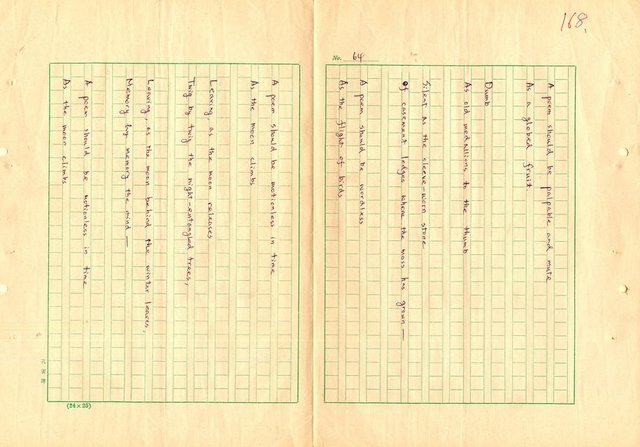 168.
No. 64
A poem should be palpable and mute
As a globed fruit
Dumb
As old medallions to the thumb
Silent as the sleeve-worn stone
Of casement ledges where the moss has grown —
A poem should be wordless
As the flight of birds
A poem should be motionless in time
As the moon climbs
Leaving, as the moon releases
Twig by twig the night-entangled trees,
Leaving, as the moon behind the winter leaves,
Memory by memory the mind —
A poem should be motionless in time
As the moon climbs
(24×25)